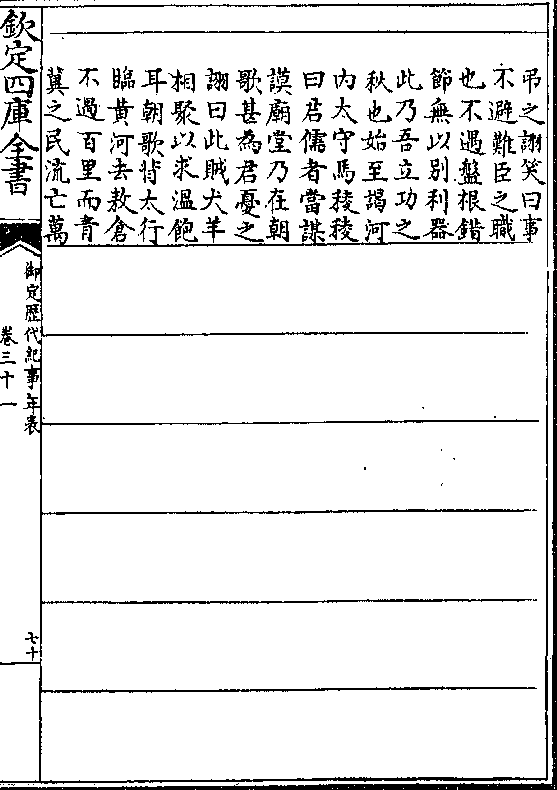 弔之詡笑曰事
不避難臣之職
也不遇盤根錯
節無以別利器
此乃吾立功之
秋也始至謁河
内太守馬稜稜
曰君儒者當謀
謨廟堂乃在朝
歌甚為君憂之
詡曰此賊犬羊
相聚以求溫飽
耳朝歌背太行
臨黄河去敖倉
不過百里而青
冀之民流亡萬
欽定四庫全書
御定歷代紀事年表
卷三十一
七十